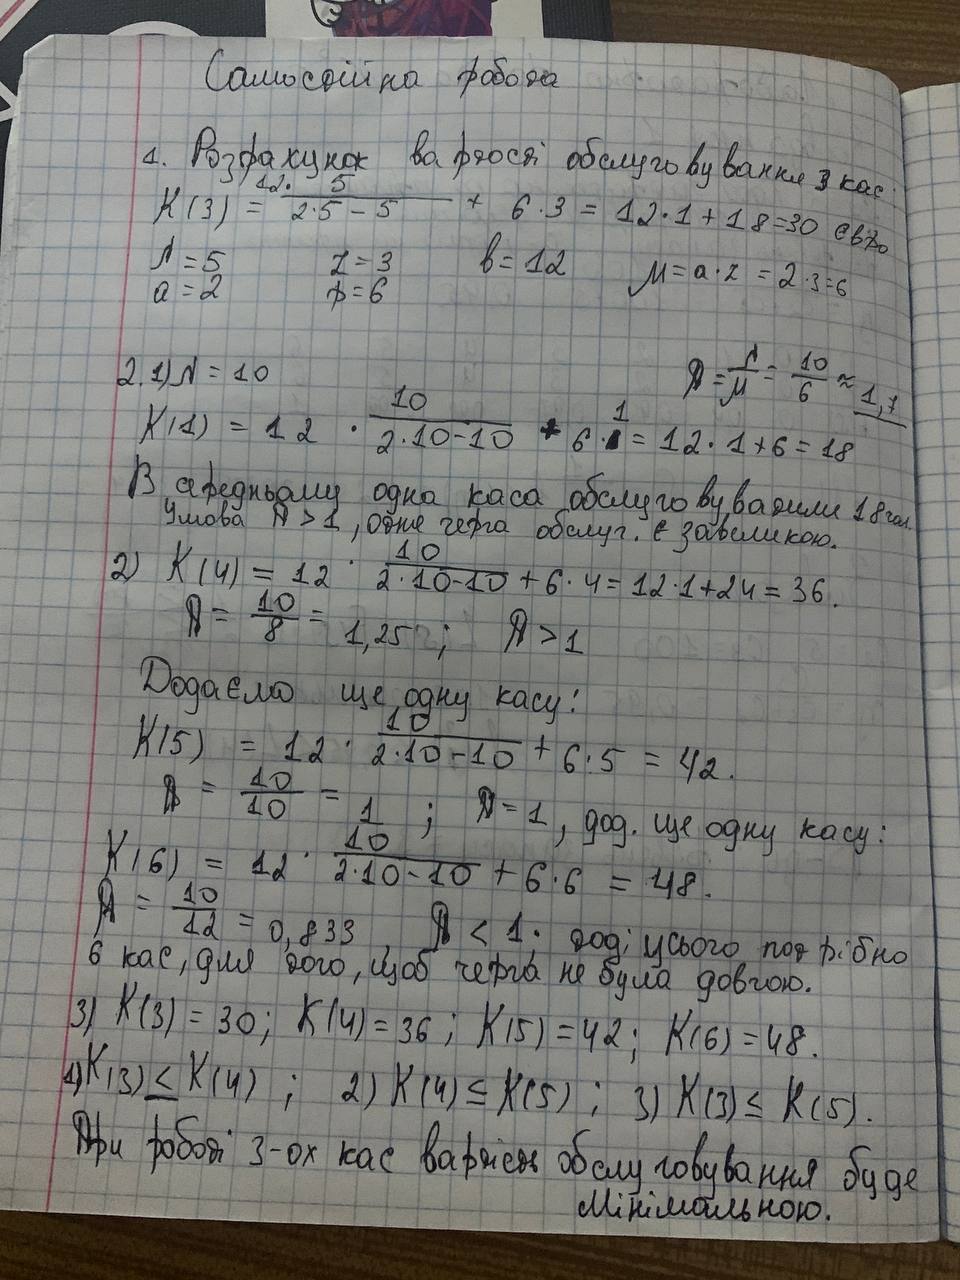 Самостійна робота
1. Розрахунок вартості обслуговування 3 кас
K(3) = 12· 5 / 2·5 – 5 + 6·3 = 12·1 + 18 = 30 євро
λ = 5 z = 3 b = 12 M = a·z = 2·3 = 6
a = 2 p = 6
2. 1) λ = 10 R = λ/M = 10/6 ≈ 1,7
K(1) = 12 · 10 / 2·10–10 + 6·1 = 12·1+6 = 18
В середньому одна каса обслуговуватиме 18
Умова R > 1, отже черга обслуг. є завеликою.
2) K(4) = 12 · 10 / 2·10–10 + 6·4 = 12·1+24 = 36.
R = 10/8 = 1,25 ; R > 1
Додаємо ще одну касу:
K(5) = 12 · 10 / 2·10–10 + 6·5 = 42.
R = 10/10 = 1 ; R = 1, дод. ще одну касу:
K(6) = 12 · 10 / 2·10–10 + 6·6 = 48.
R = 10/12 = 0,833 R < 1. тоді усього потрібно
6 кас, для того, щоб черга не була довгою.
3) K(3) = 30; K(4) = 36; K(5) = 42; K(6) = 48.
1) K(3) ≤ K(4) ; 2) K(4) ≤ K(5) ; 3) K(3) ≤ K(5).
При роботі 3-ох кас вартість обслуговування буде
мінімальною.